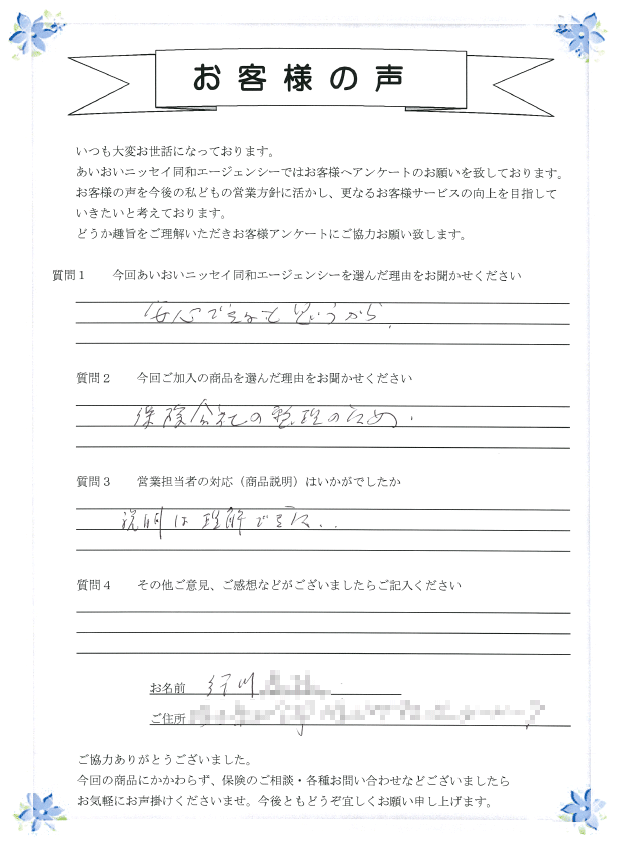 お客様の声
いつも大変お世話になっております。
あいおいニッセイ同和エージェンシーではお客様へアンケートのお願いを致しております。
お客様の声を今後の私どもの営業方針に活かし、更なるお客様サービスの向上を目指して
いきたいと考えております。
どうか趣旨をご理解いただきお客様アンケートにご協力お願い致します。
質問1 今回あいおいニッセイ同和エージェンシーを選んだ理由をお聞かせください
安心できると思うから.
質問2 今回ご加入の商品を選んだ理由をお聞かせください
保険会社の整理のため.
質問3 営業担当者の対応（商品説明）はいかがでしたか
説明は理解できた..
質問4 その他ご意見、ご感想などがございましたらご記入ください
お名前 行川
ご住所
ご協力ありがとうございました。
今回の商品にかかわらず、保険のご相談・各種お問い合わせなどございましたら
お気軽にお声掛けくださいませ。今後ともどうぞ宜しくお願い申し上げます。